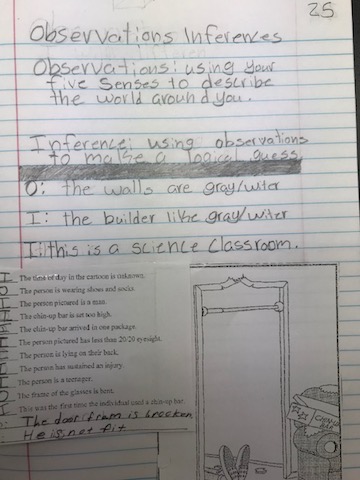 25
Observations Inferences
Observations: using your
five senses to describe
the world around you.
Inference: using observations
to make a logical guess.
O: the walls are gray/witer
I: the builder like gray/witer
I: this is a science classroom.
I The time of day in the cartoon is unknown.
The person is wearing shoes and socks.
The person pictured is a man.
The chin-up bar is set too high.
The chin-up bar arrived in one package.
The person pictured has less than 20/20 eyesight.
The person is lying on their back.
The person has sustained an injury.
The person is a teenager.
The frame of the glasses is bent.
This was the first time the individual used a chin-up bar.
The door fram is brocken
He is not fit